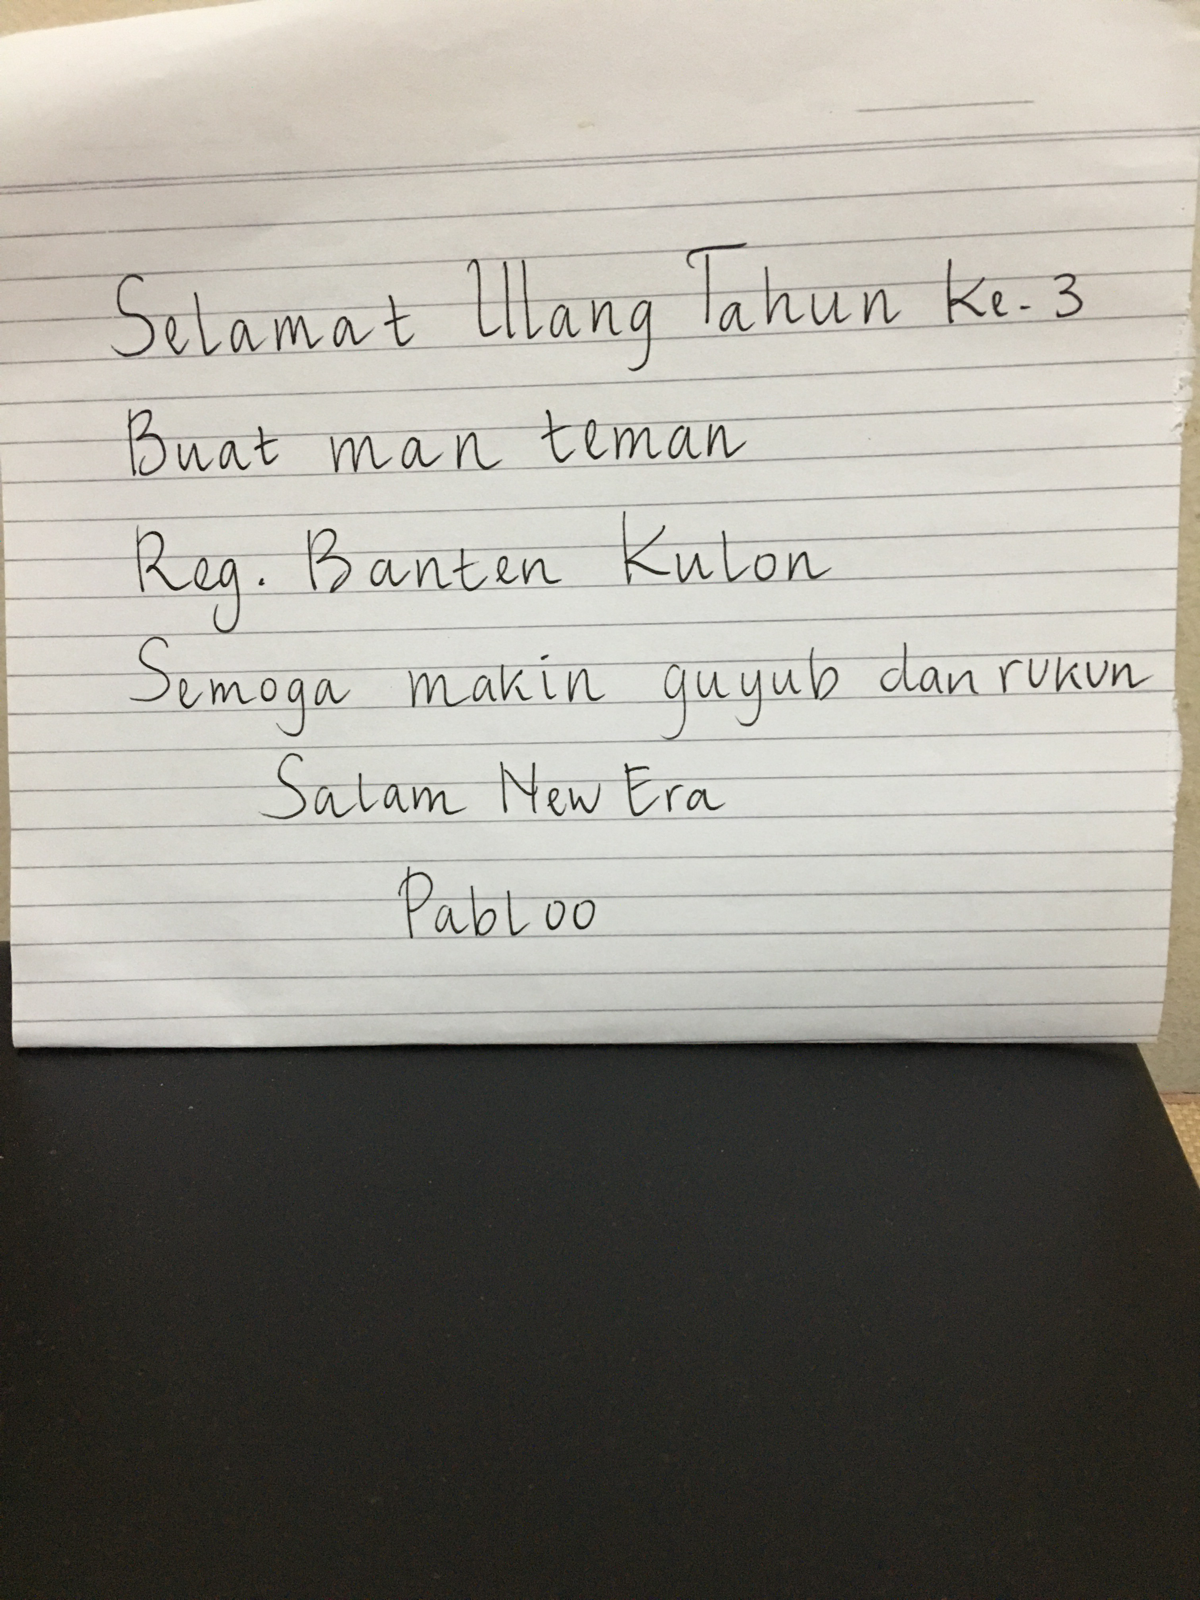 Selamat Ulang Tahun Ke-3
Buat man teman
Reg. Banten Kulon
Semoga makin guyub dan rukun
Salam New Era
Pabloo